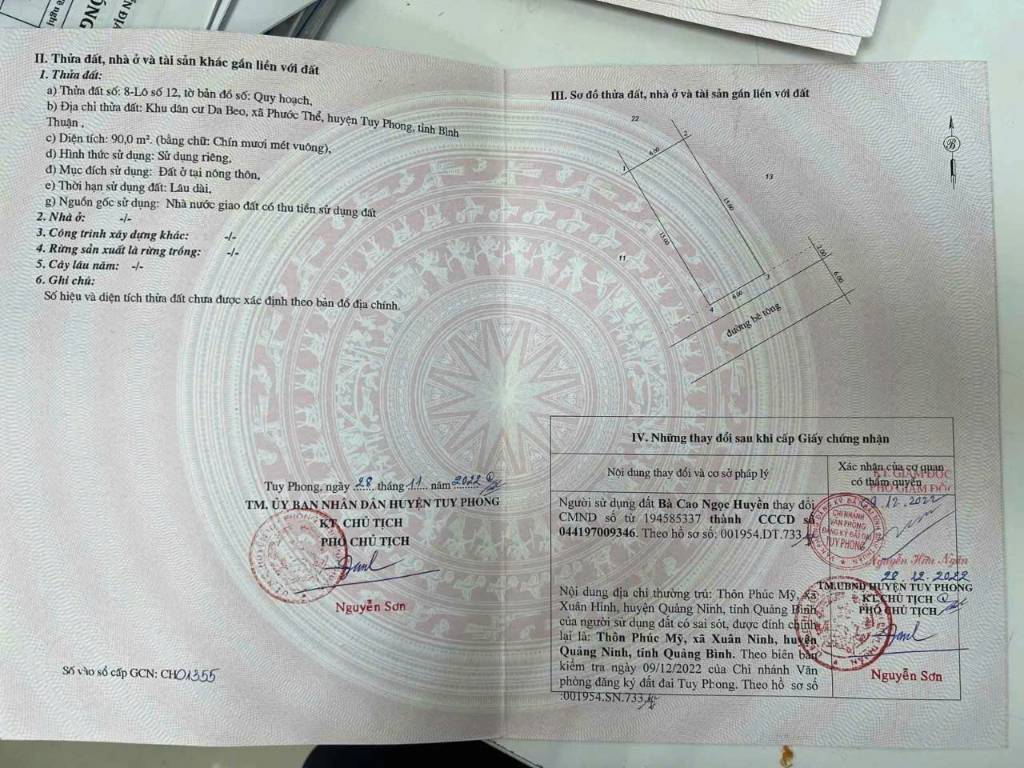 II. Thửa đất, nhà ở và tài sản khác gắn liền với đất
1. Thửa đất:
a) Thửa đất số: 8-Lô số 12, tờ bản đồ số: Quy hoạch,
b) Địa chỉ thửa đất: Khu dân cư Da Beo, xã Phước Thể, huyện Tuy Phong, tỉnh Bình
Thuận .
c) Diện tích: 90,0 m². (bằng chữ: Chín mươi mét vuông),
d) Hình thức sử dụng: Sử dụng riêng,
đ) Mục đích sử dụng: Đất ở tại nông thôn,
e) Thời hạn sử dụng đất: Lâu dài,
g) Nguồn gốc sử dụng: Nhà nước giao đất có thu tiền sử dụng đất
2. Nhà ở: -/-
3. Công trình xây dựng khác: -/-
4. Rừng sản xuất là rừng trồng: -/-
5. Cây lâu năm: -/-
6. Ghi chú:
Số hiệu và diện tích thửa đất chưa được xác định theo bản đồ địa chính.
Tuy Phong, ngày 28 tháng 11 năm 2022
TM. ỦY BAN NHÂN DÂN HUYỆN TUY PHONG
KT. CHỦ TỊCH
PHÓ CHỦ TỊCH
Nguyễn Sơn
Số vào sổ cấp GCN: CH01355
III. Sơ đồ thửa đất, nhà ở và tài sản gắn liền với đất
22
2
6.00
1
13
B
15.00
15.00
11
3
2.00
6.00
6.00
4
đường bê tông
IV. Những thay đổi sau khi cấp Giấy chứng nhận
Nội dung thay đổi và cơ sở pháp lý
Xác nhận của cơ quan
có thẩm quyền
KT. GIÁM ĐỐC
PHÓ GIÁM ĐỐC
Người sử dụng đất Bà Cao Ngọc Huyền thay đổi
CMND số từ 194585337 thành CCCD số
044197009346. Theo hồ sơ số: 001954.DT.733
09.12.2022
CHI NHÁNH
VĂN PHÒNG
ĐĂNG KÝ ĐẤT ĐAI
TUY PHONG
Nguyễn Hữu Ngân
Nội dung địa chỉ thường trú: Thôn Phúc Mỹ, xã
Xuân Hinh, huyện Quảng Ninh, tỉnh Quảng Bình
của người sử dụng đất có sai sót, được đính chính
lại là: Thôn Phúc Mỹ, xã Xuân Ninh, huyện
Quảng Ninh, tỉnh Quảng Bình. Theo biên bản
kiểm tra ngày 09/12/2022 của Chi nhánh Văn
phòng đăng ký đất đai Tuy Phong. Theo hồ sơ số
:001954.SN.733
28.12.2022
TM.UBND HUYỆN TUY PHONG
KT. CHỦ TỊCH
PHÓ CHỦ TỊCH
Nguyễn Sơn